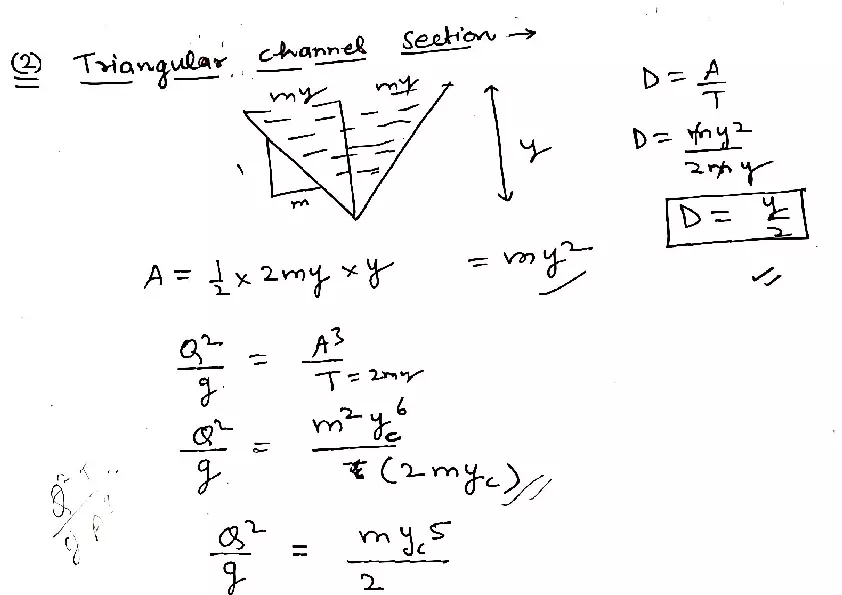 (2) Triangular channel section →
my my
y
1
m
D = A/T
D = my²/2my
D = y/2
A = 1/2 × 2my × y = my²
Q²/g = A³/T = 2my
Q²/g = m² y_c⁶/(2my_c)
Q²/g = m y_c 5/2